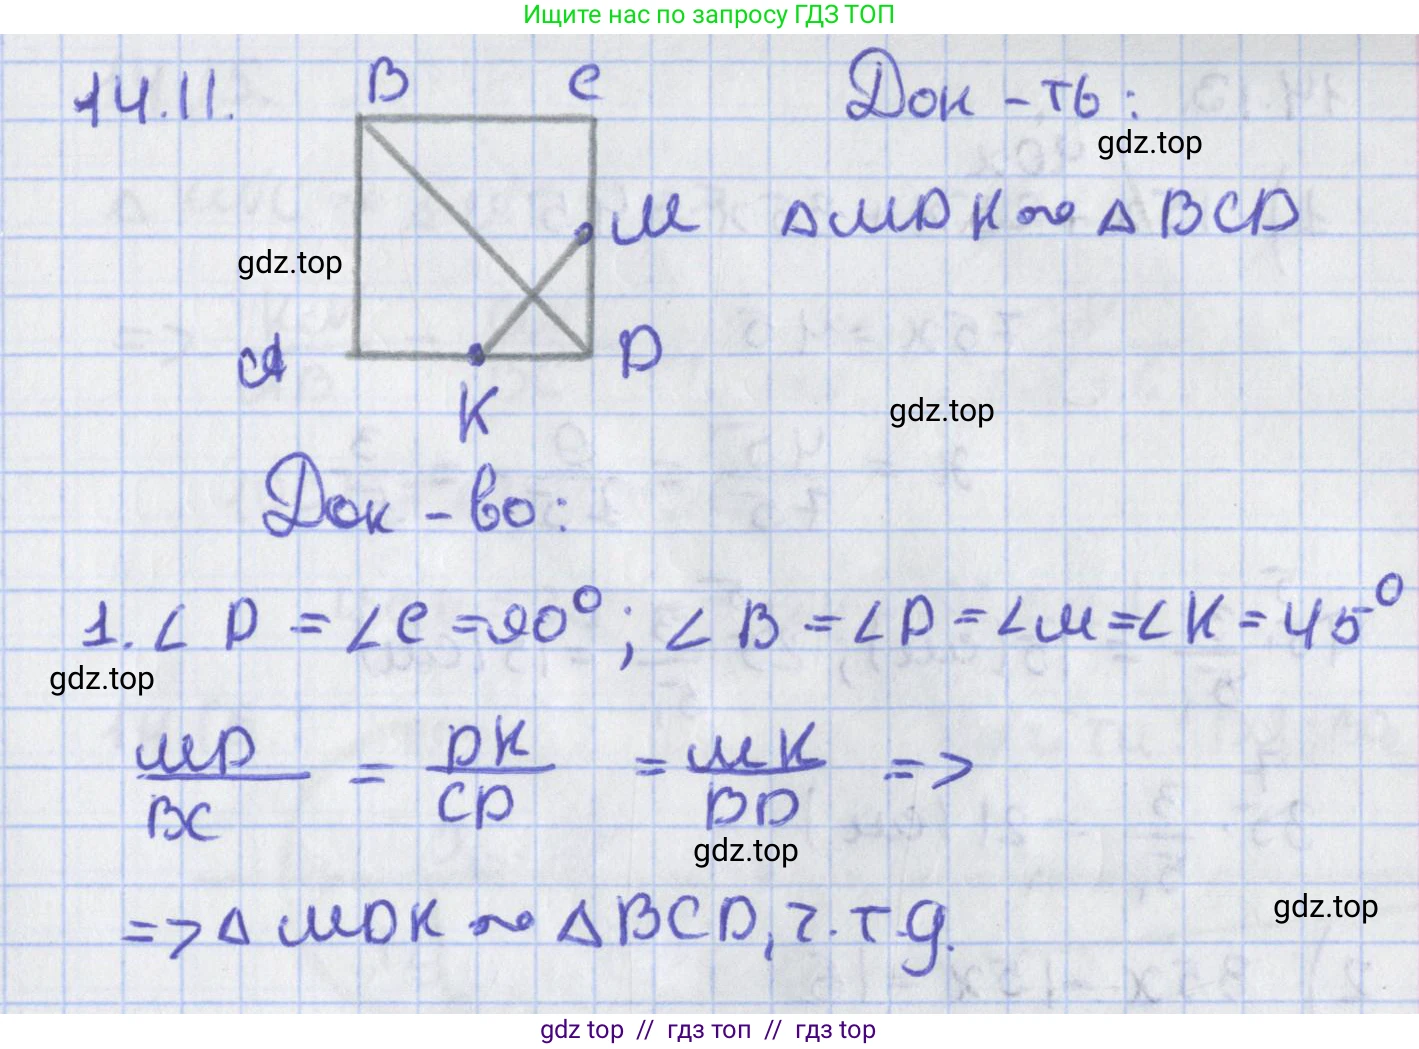 Ищите нас по запросу ГДЗ ТОП
14.11.
B C
Док-ть:
gdz.top
M
ΔMDK ∾ ΔBCD
gdz.top
A
D
K
gdz.top
Док-во:
1. ∠D = ∠C = 90°; ∠B = ∠D = ∠M = ∠K = 45°
gdz.top
MD/BC = DK/CD = MK/BD =>
gdz.top
=> ΔMDK ∾ ΔBCD, ч.т.д.
gdz.top
gdz top // гдз топ // гдз top